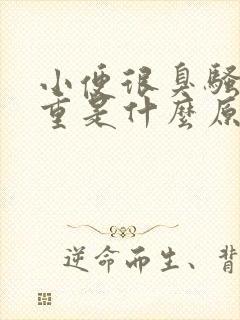 小便很臭騷
重是什麼原
逆命而生、背